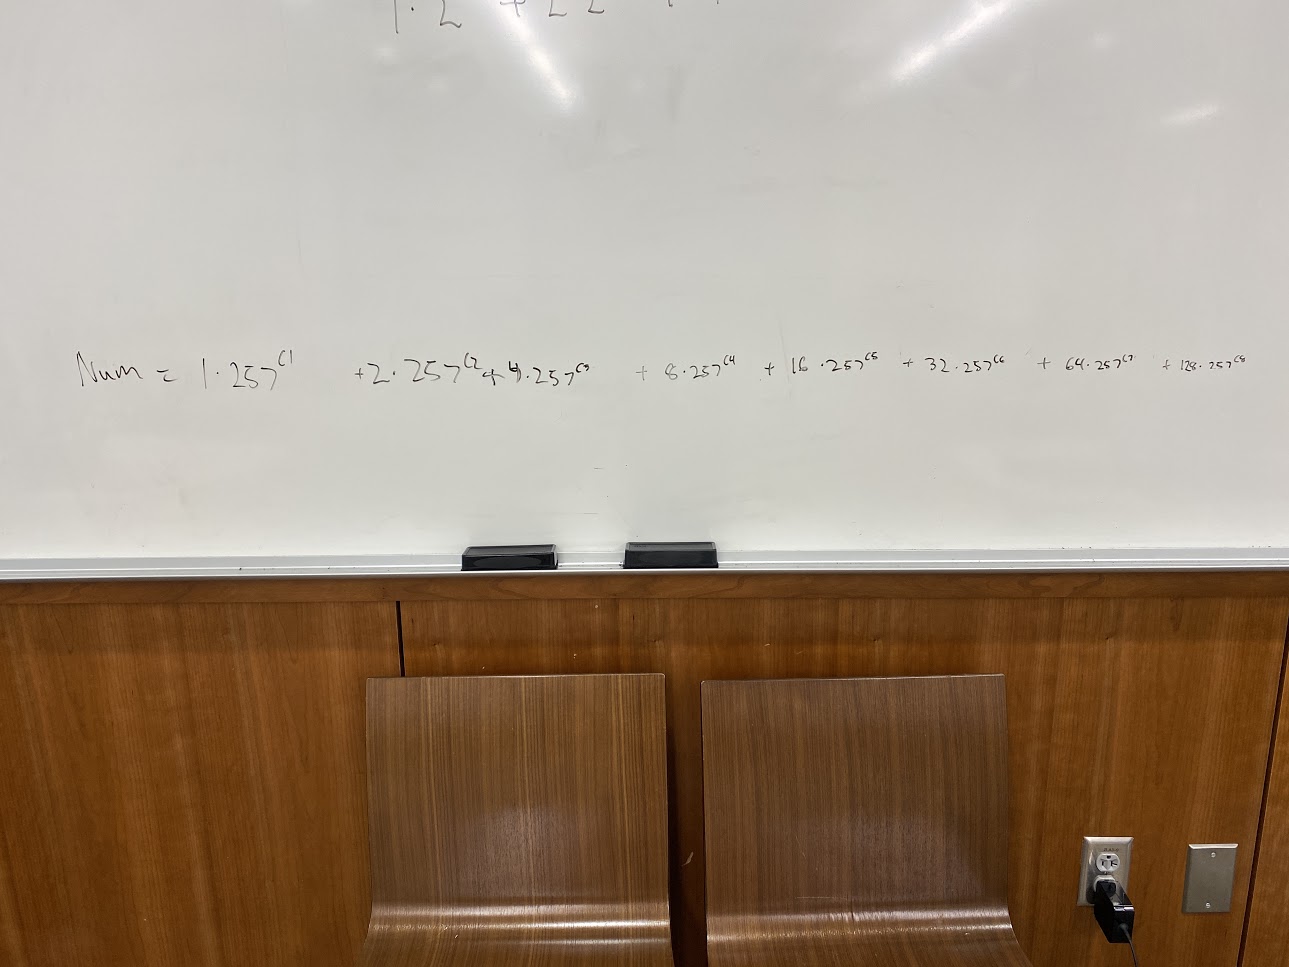 1·2 +22
Num = 1·257^c1 +2·257^c2 +4·257^c3 + 8·257^c4 + 16·257^c5 + 32·257^c6 + 64·257^c7 + 128·257^c8